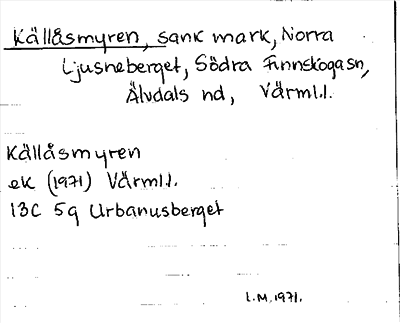 Källåsmyren, sank mark, Norra
Ljusneberget, Södra Finnskogasn,
Älvdals nd, Värml.l.
Källåsmyren
ek (1971) Värml.l.
13C 5g Urbanusberget
L.M. 1971.